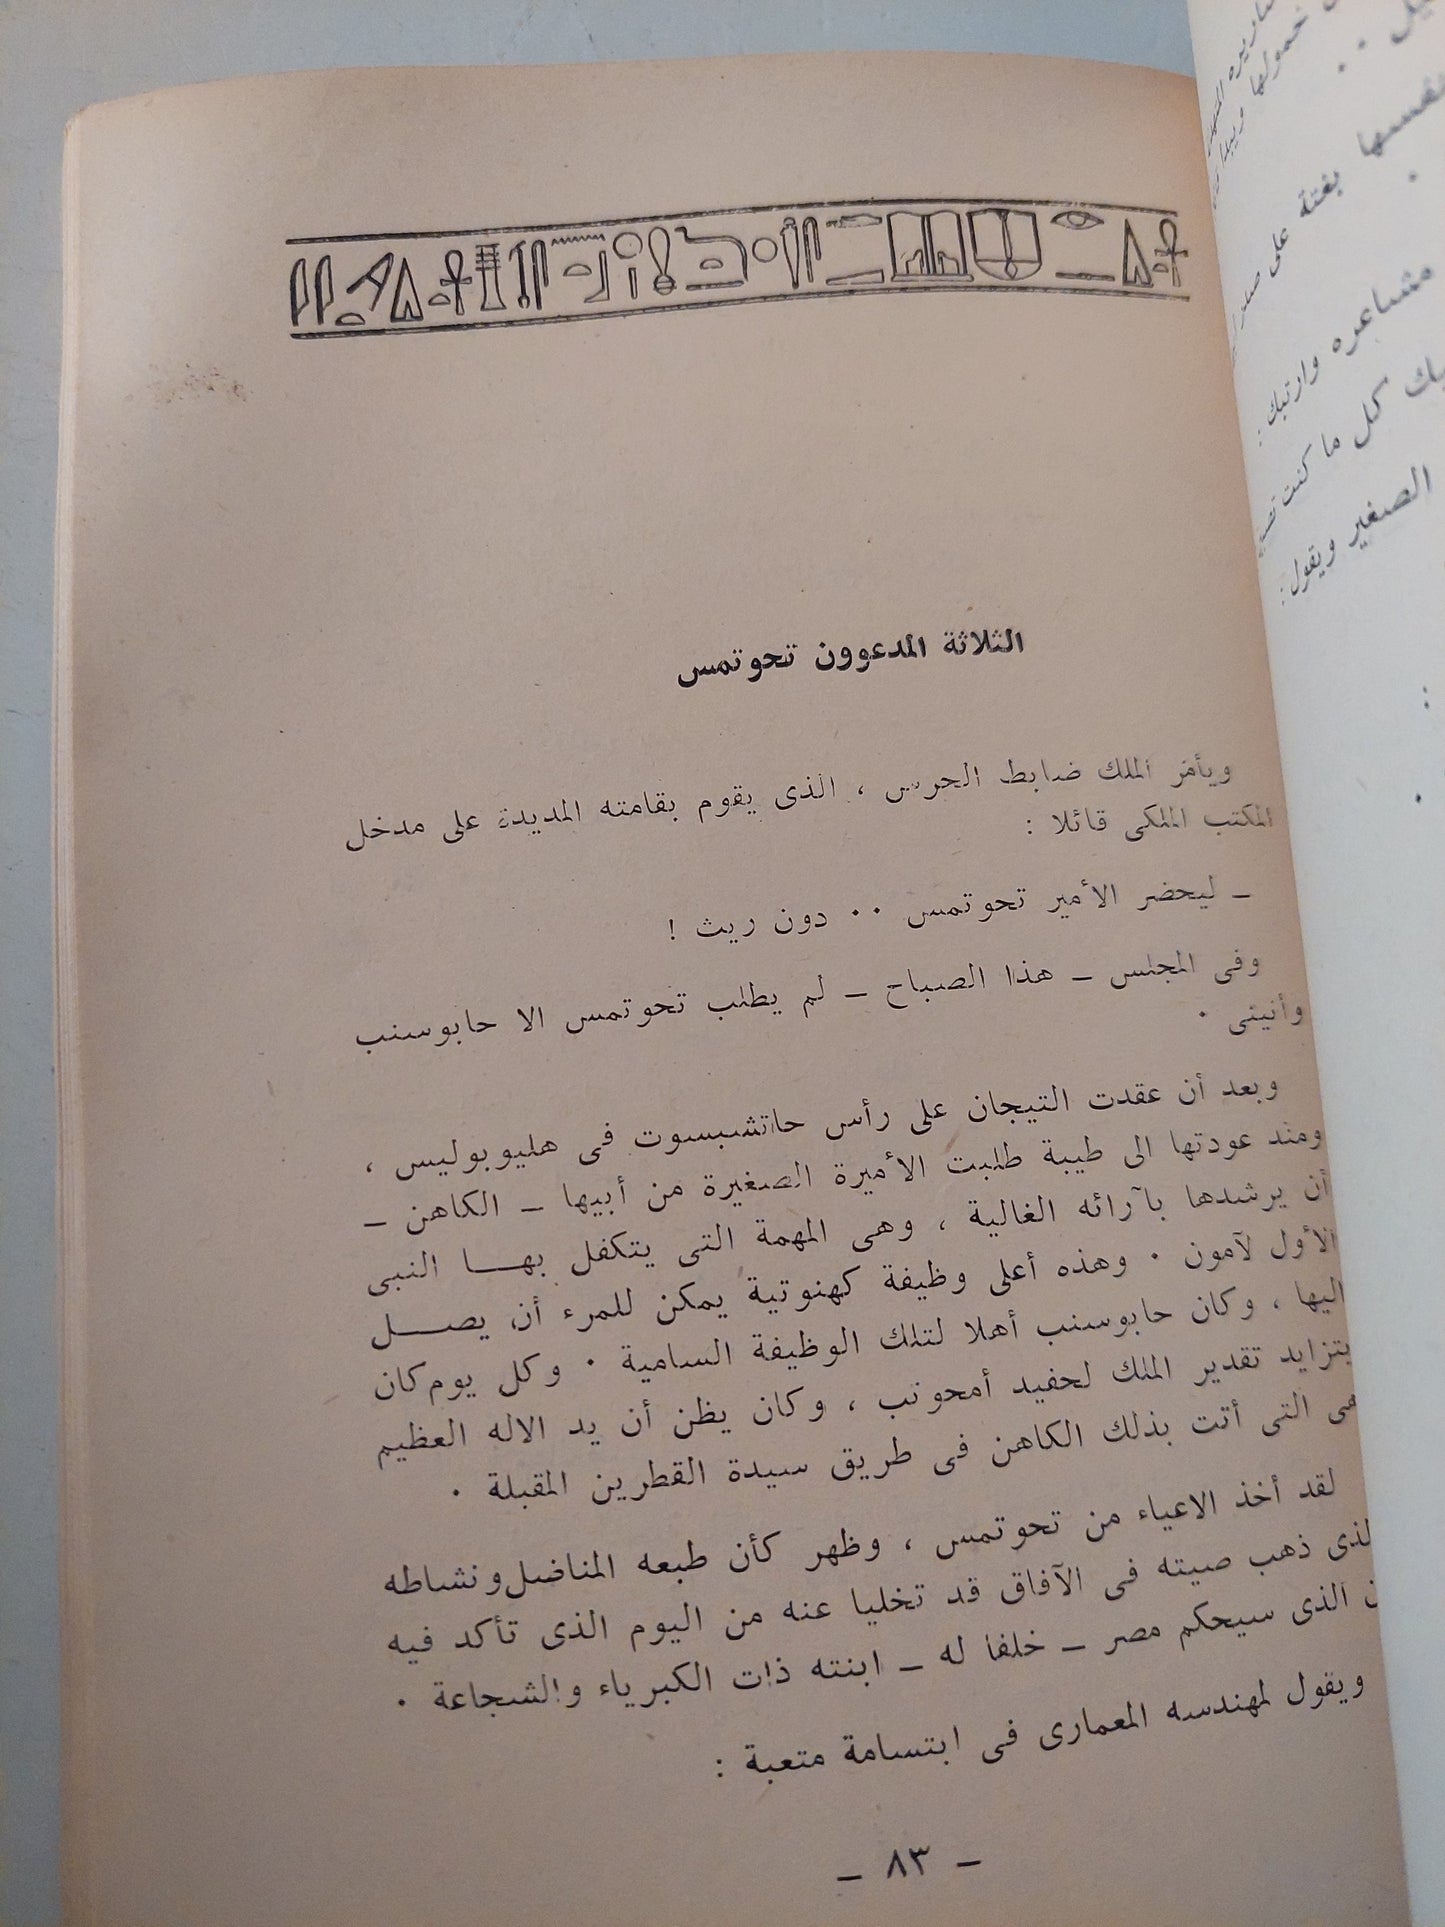 الثلاثة المدعوون تحوتمس
ويأمر الملك ضابط الحرس ، الذى يقوم بقامته المديدة على مدخل
المكتب الملكى قائلا :
ـ ليحضر الأمير تحوتمس ٠٠ دون ريث !
وفى المجلس ـ هذا الصباح ـ لم يطلب تحوتمس الا حابوسنب
وأنينى ٠
وبعد أن عقدت التيجان على رأس حاتشبسوت فى هليوبوليس ،
ومنذ عودتها الى طيبة طلبت الأميرة الصغيرة من أبيها ـ الكاهن ـ
أن يرشدها بآرائه الغالية ، وهى المهمة التى يتكفل بهـا النبى
الأول لآمون ٠ وهذه أعلى وظيفة كهنوتية يمكن للمرء أن يصـل
اليها ، وكان حابوسنب أهلا لتلك الوظيفة السامية ٠ وكل يوم كان
يتزايد تقدير الملك لحفيد أمحوتب ، وكان يظن أن يد الاله العظيم
هى التى أتت بذلك الكاهن فى طريق سيدة القطرين المقبلة ٠
لقد أخذ الاعياء من تحوتمس ، وظهر كأن طبعه المناضل ونشاطه
لذى ذهب صيته فى الآفاق قد تخليا عنه من اليوم الذى تأكد فيه
ن الذى سيحكم مصر ـ خلفا له ـ ابنته ذات الكبرياء والشجاعة ٠
ويقول لمهندسه المعمارى فى ابتسامة متعبة :
ـ ٨٣ ـ
خمولها
نفسها بغتة على
مشاعره وارتبك :
كل ما كنت
الصغير ويقول :